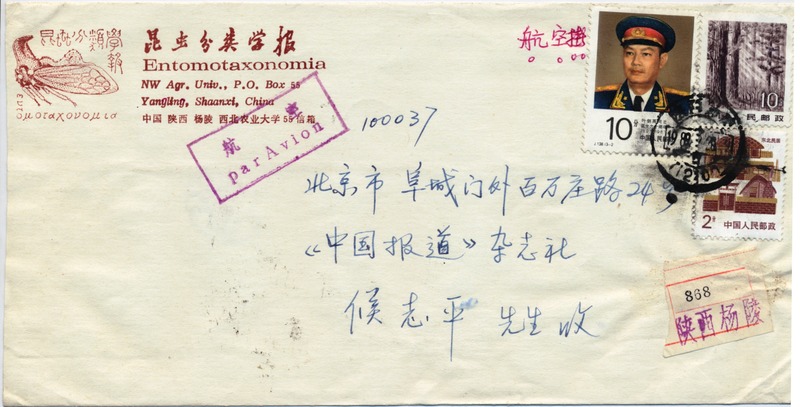 昆虫分類學報
昆虫分类学报
Entomotaxonomia
NW Agr. Univ., P.O. Box 55
Yangling, Shaanxi, China
中国 陕西 杨陵 西北农业大学 55 信箱
航空
par Avion
航空挂
10分
10
民邮政
东北民居
2分
中国人民邮政
100037
北京市阜城门外百万庄路24号
《中国报道》杂志社
侯志平 先生收
868
陕西杨陵